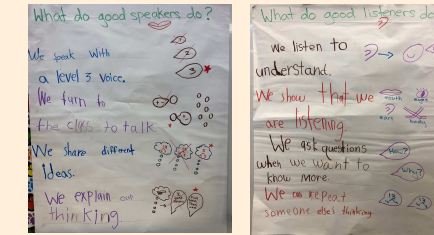 What do good speakers do?
We speak with
a level 3 voice.
We turn to
the class to talk.
We share different
Ideas.
We explain our
thinking
What do good listeners do
We listen to
understand.
We show that we
are listening.
We ask questions
when we want to
know more.
We can repeat
someone else's thinking
1
2
3
mouth
eyes
ears
hands
Why?